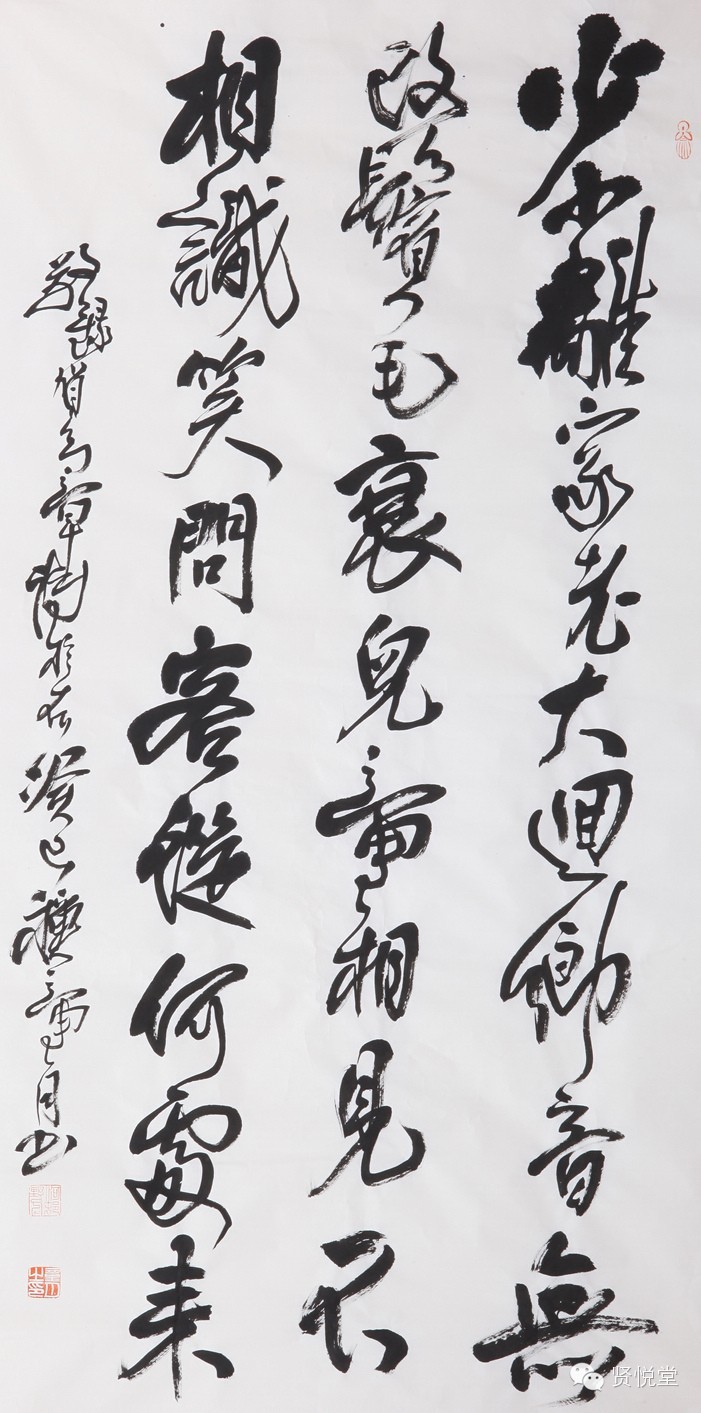 少小離家老大迴鄉音無
改鬢毛衰兒童相見不
相識笑問客從何處來
敬錄賀知章詩於右癸巳童月书
贤悦堂